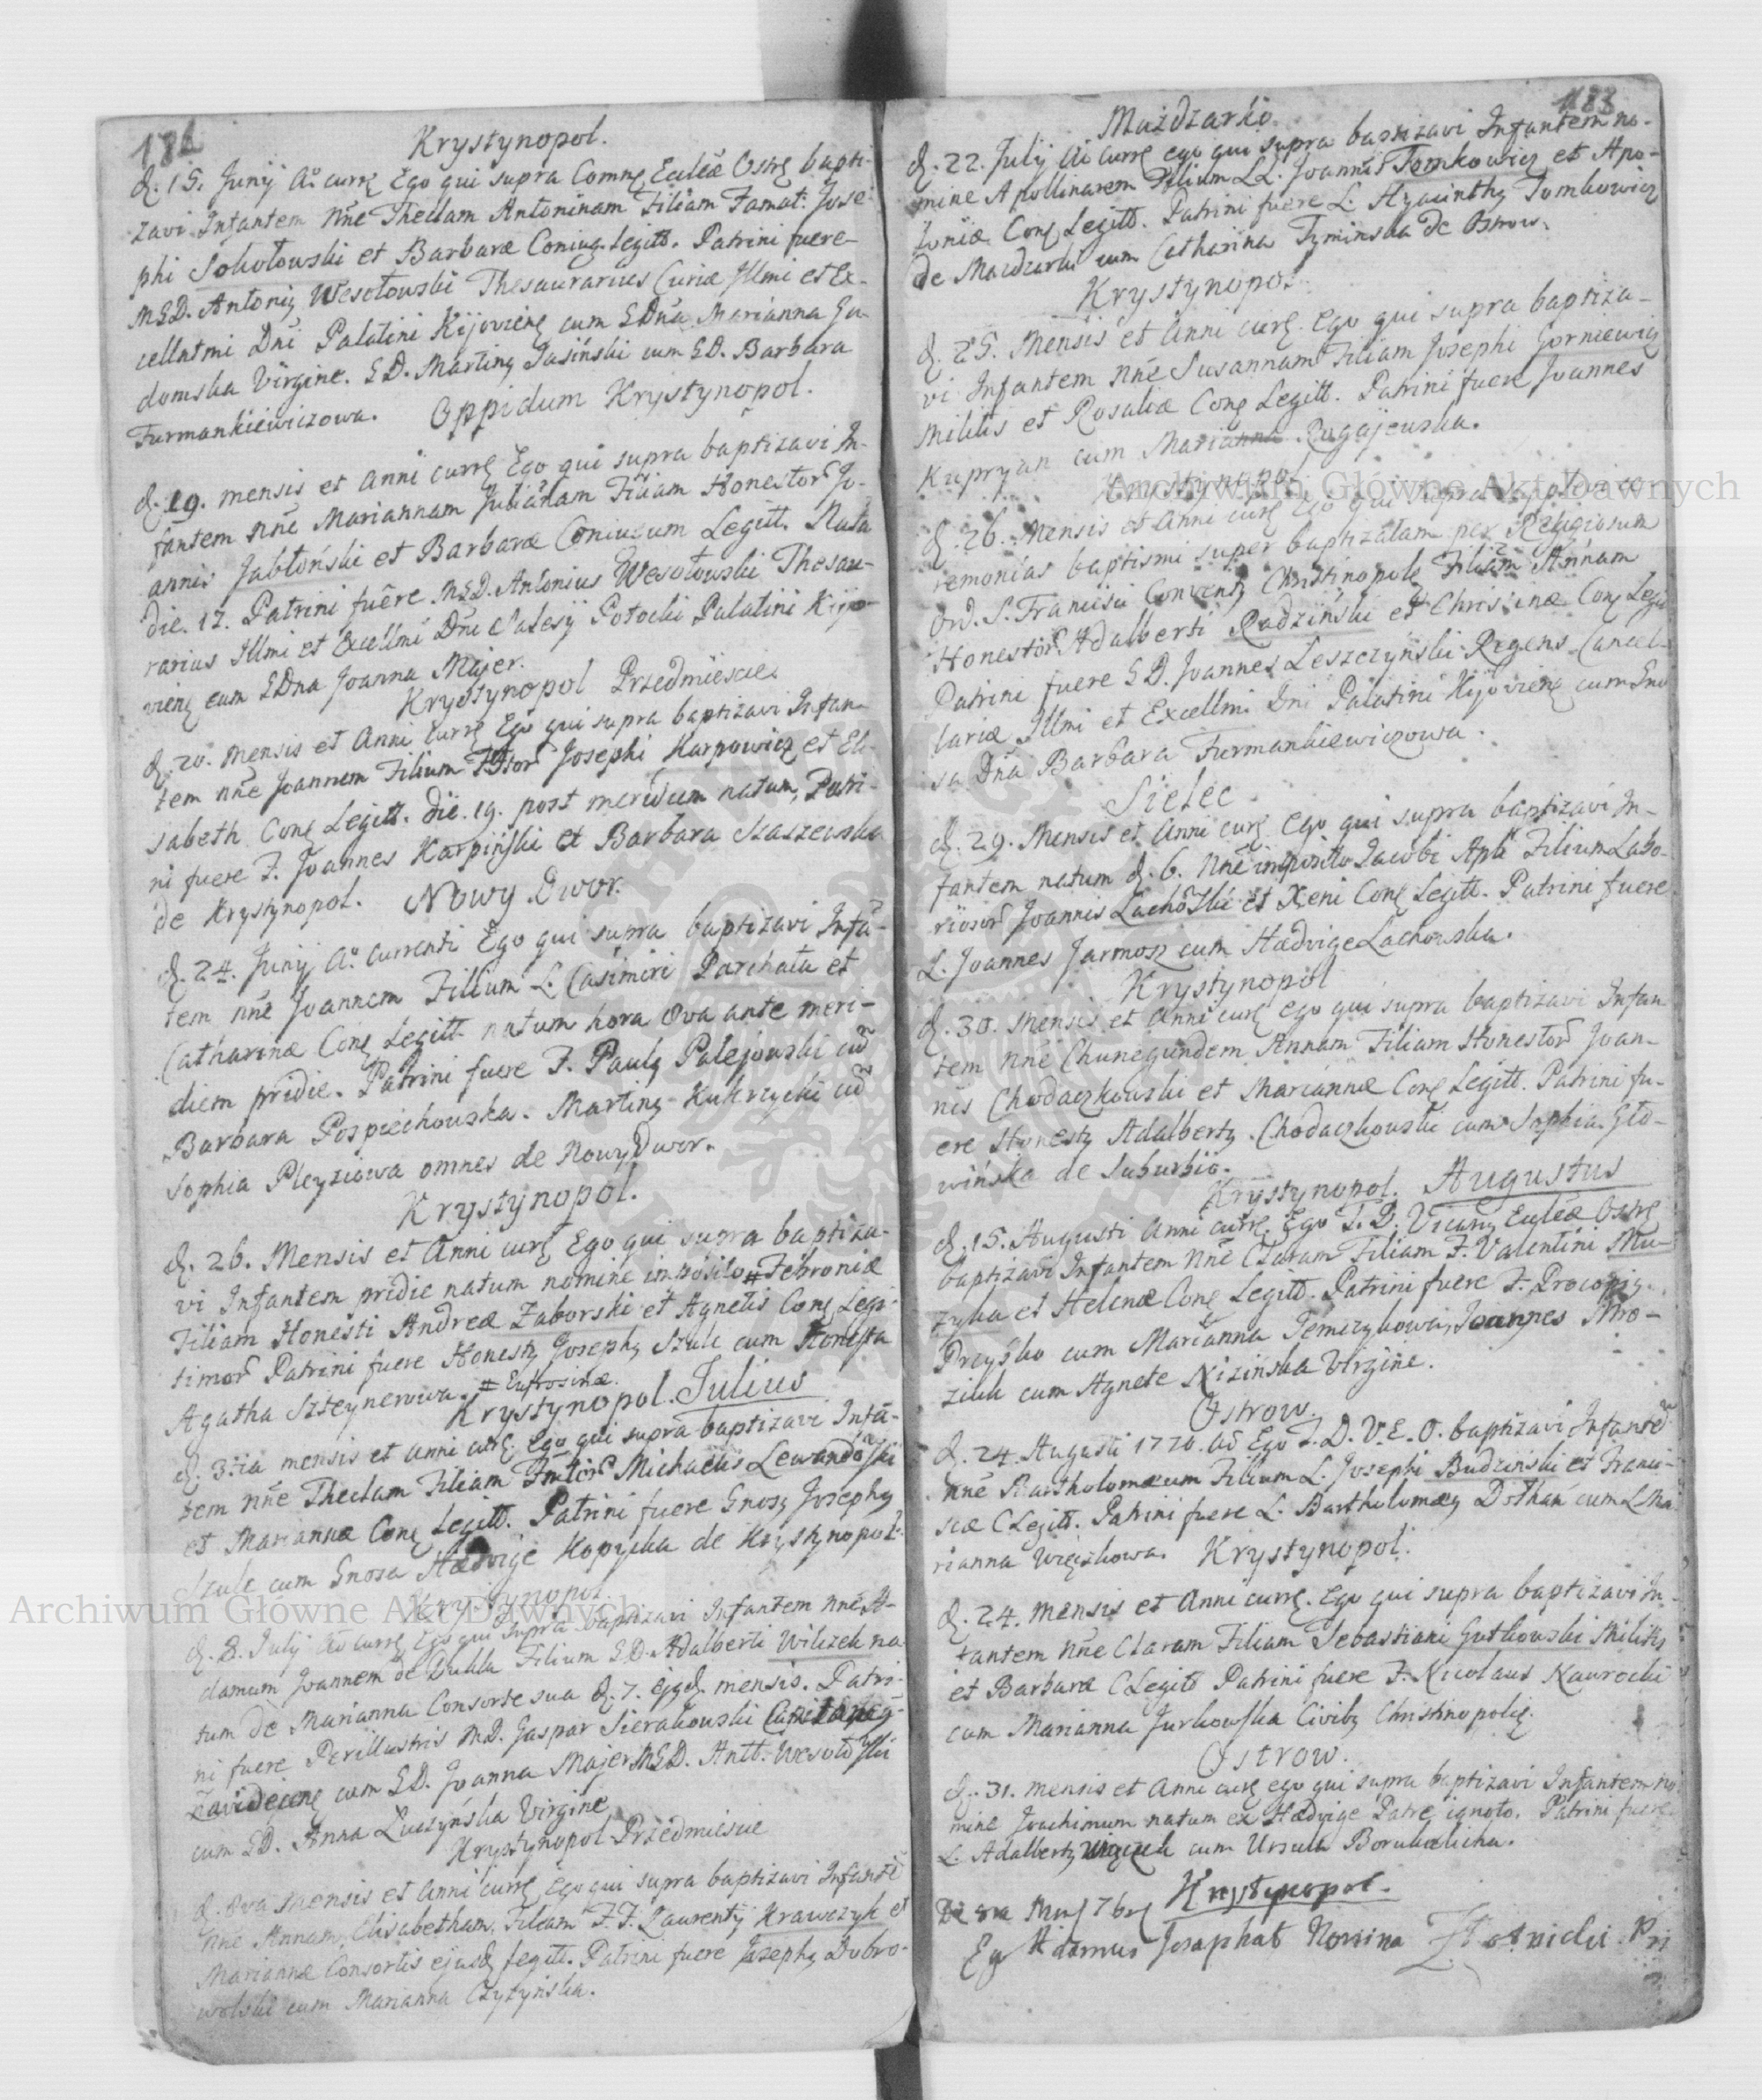 182
Krystynopol.
d. 15. Junij Aō currę Ego qui supra Commę Eccleæ Ostrę bapti-
zavi Infantem nn̄e Theclam Antoninam Filiam Famat. Jose-
phi Sokołowski et Barbaræ Coniug. Legitt. Patrini fuere
MGD. Antonig Wesołowski Thesaurarius Curiæ Illmi et Ex-
cellntmi Dn̄i Palatini Kijovienę cum GDn̄a Marianna Gu-
domska Virgine. GD. Marting Jasiński cum GD. Barbara
Furmankiewiczowa. Oppidum Krystynopol.
d. 19. mensis et Anni currę Ego qui supra baptizavi In-
fantem nn̄e Mariannam Julianam Filiam Honestor Jo-
annis Jabłoński et Barbaræ Coniugum Legitt. Nata
die. 17. Patrini fuêre MGD. Antonius Wesołowski Thesau-
rarius Illmi et Excellmi Dn̄i Salesij Potocki Palatini Kijo-
vienę cum GDna Joanna Majer.
Krystynopol Przedmieście.
d. 20. Mensis et Anni currę Ego qui supra baptizavi Infan-
tem nn̄e Joannem Filium Josephi Karpowicz et Eli-
sabeth Conę Legitt. die. 19. post meridiem natum, Patri-
ni fuere F. Joannes Karpiński et Barbara Staszewska
de Krystynopol. Nowy Dwor.
d. 24. Junij Aō Currenti Ego qui supra baptizavi Infā-
tem nn̄e Joannem Filium L. Casimiri Parchata et
Catharinæ Conę Legitt. natum hora 8va ante meri-
diem pridie. Patrini fuere F. Paulg Palejowski cū
Barbara Pospiechowska. Marting Kukrzycki cū
Sophia Pleyziowa omnes de Nowy Dwor.
Krystynopol.
d. 26. Mensis et Anni currę Ego qui supra baptiza-
vi Infantem pridie natum nomine imposito # Febroniæ
Filiam Honesti Andreæ Zaborski et Agnetis Conę Legi-
timor Patrini fuere Honestg Josephg Szulc cum Honesta
Agatha Szteynerowa. # Eufrosinæ.
Krystynopol. Julius
d. 3tia mensis et anni currę Ego qui supra baptizavi Infā-
tem nn̄e Theclam Filiam Michaelis Lewandoski
et Mariannæ Conę Legitt. Patrini fuere Gnosg Josephg
Szulc cum Gnosa Hedvige Kopycka de Krystynopol.
Krystynopol.
d. 8. Julij Aō currę Ego qui supra baptizavi Infantem nn̄e A-
damum Joannem de Dukla Filium GD. Adalberti Wilczek na-
tum de Marianna Consorte sua d. 7. ejqd. mensis. Patri-
ni fuere Perillustris MD. Gaspar Sierakowski
cum GD. Joanna Majer MGD. Antt. Wesołowski
cum GD. Anna Luczyńska Virgine
Krystynopol Przedmieście
d. 8va Mensis et Anni currę Ego qui supra baptizavi Infantē
nn̄e Annam Elisabetham, Filiam F.F. Laurentij Krawczyk et
Mariannæ Consortis ejusd. legitt. Patrini fuere Josephg Dobro-
wolski cum Marianna Czyżyńska.
183
Mażdzarko.
d. 22. Julij Aō currę ego qui supra baptizavi Infantem no-
mine Apollinarem Filium LL. Joannis Tomkowicz et Apo-
loniæ Conę Legitt. Patrini fuere L. Hyacinthg Tomkowicz
de Mazdzarki cum Catharina Tyminska de Ostrow.
Krystynopol
d. 25. Mensis et Anni currę. Ego qui supra baptiza-
vi Infantem nn̄e Susannam Filiam Josephi Gorniewicz
Militis et Rosaliæ Conę Legitt. Patrini fuere Joannes
Kupryan cum Marianna Rugajewska.
Krystynopol
d. 26. Mensis et Anni currę Ego qui supra
remonias baptismi super baptizatam per Religiosum
Ord. S. Francisci Conventg Christinopolę Filiam Annam
Honestor Adalberti Radziński et Christinæ Conę Legitt
Patrini fuere GD. Joannes Leszczyński Regens Cancel-
lariæ Illmi et Excellmi Dni Palatini Kijovienę cum Gno-
sa Dn̄a Barbara Furmankiewiczowa.
Sielec
d. 29. Mensis et Anni currę Ego qui supra baptizavi In-
fantem natum d. 6. nn̄e imposito Jacobi Apli Filium Labo-
riosor Joannis Lachoski et Xeni Conę Legitt. Patrini fuere
L. Joannes Jarmosz cum Hædvige Lachowska.
Krystynopol
d. 30. Mensis et Anni currę Ego qui supra baptizavi Infan-
tem nn̄e Chunegundem Annam Filiam Honestor Joan-
nis Chodaczkowski et Mariannæ Conę Legitt. Patrini fu-
ere Honestg Adalbertg Chodaczkowski cum Sophia Gło-
wińska de Suburbio.
Krystynopol. Augustus
d. 15. Augusti Anni currę Ego T. D. Vicarg Eccleæ Ostrę
baptizavi Infantem Nn̄e Claram Filiam F. Valentini Mu-
zyka et Helenæ Conę Legitt. Patrini fuere F. Procopig
Preysko cum Marianna Jemczykowa, Joannes Mro-
ziuk cum Agnete Nizińska Virgine.
Ostrow.
d. 24. Augusti 1770. aō Ego T. D. V. E. O. baptizavi Infantē
nn̄e Bartholomæum Filium L. Josephi Budzinski et Franci-
scæ C Legitt. Patrini fuere L. Bartholomæg Dothań cum L Ma-
rianna Więczkowa. Krystynopol.
d. 24. mensis et Anni currę. Ego qui supra baptizavi In-
fantem nn̄e Claram Filiam Sebastiani Gutkowski Militis
et Barbaræ C Legitt Patrini fuere F. Nicolaus Nawrocki
cum Marianna Jurkowska Civibg Christinopolię.
Ostrow.
d. 31. mensis et Anni currę ego qui supra baptizavi Infantem no-
mine Joachimum natum ex Hædvige Patre ignoto. Patrini fuere
L. Adalbertg cum Ursula Borukalicha.
Krystynopol.
Die 8va 7brę
Eg Adamus Josaphat Nowina Złotnicki Pri
Archiwum Główne Akt Dawnych
Archiwum Główne Akt Dawnych